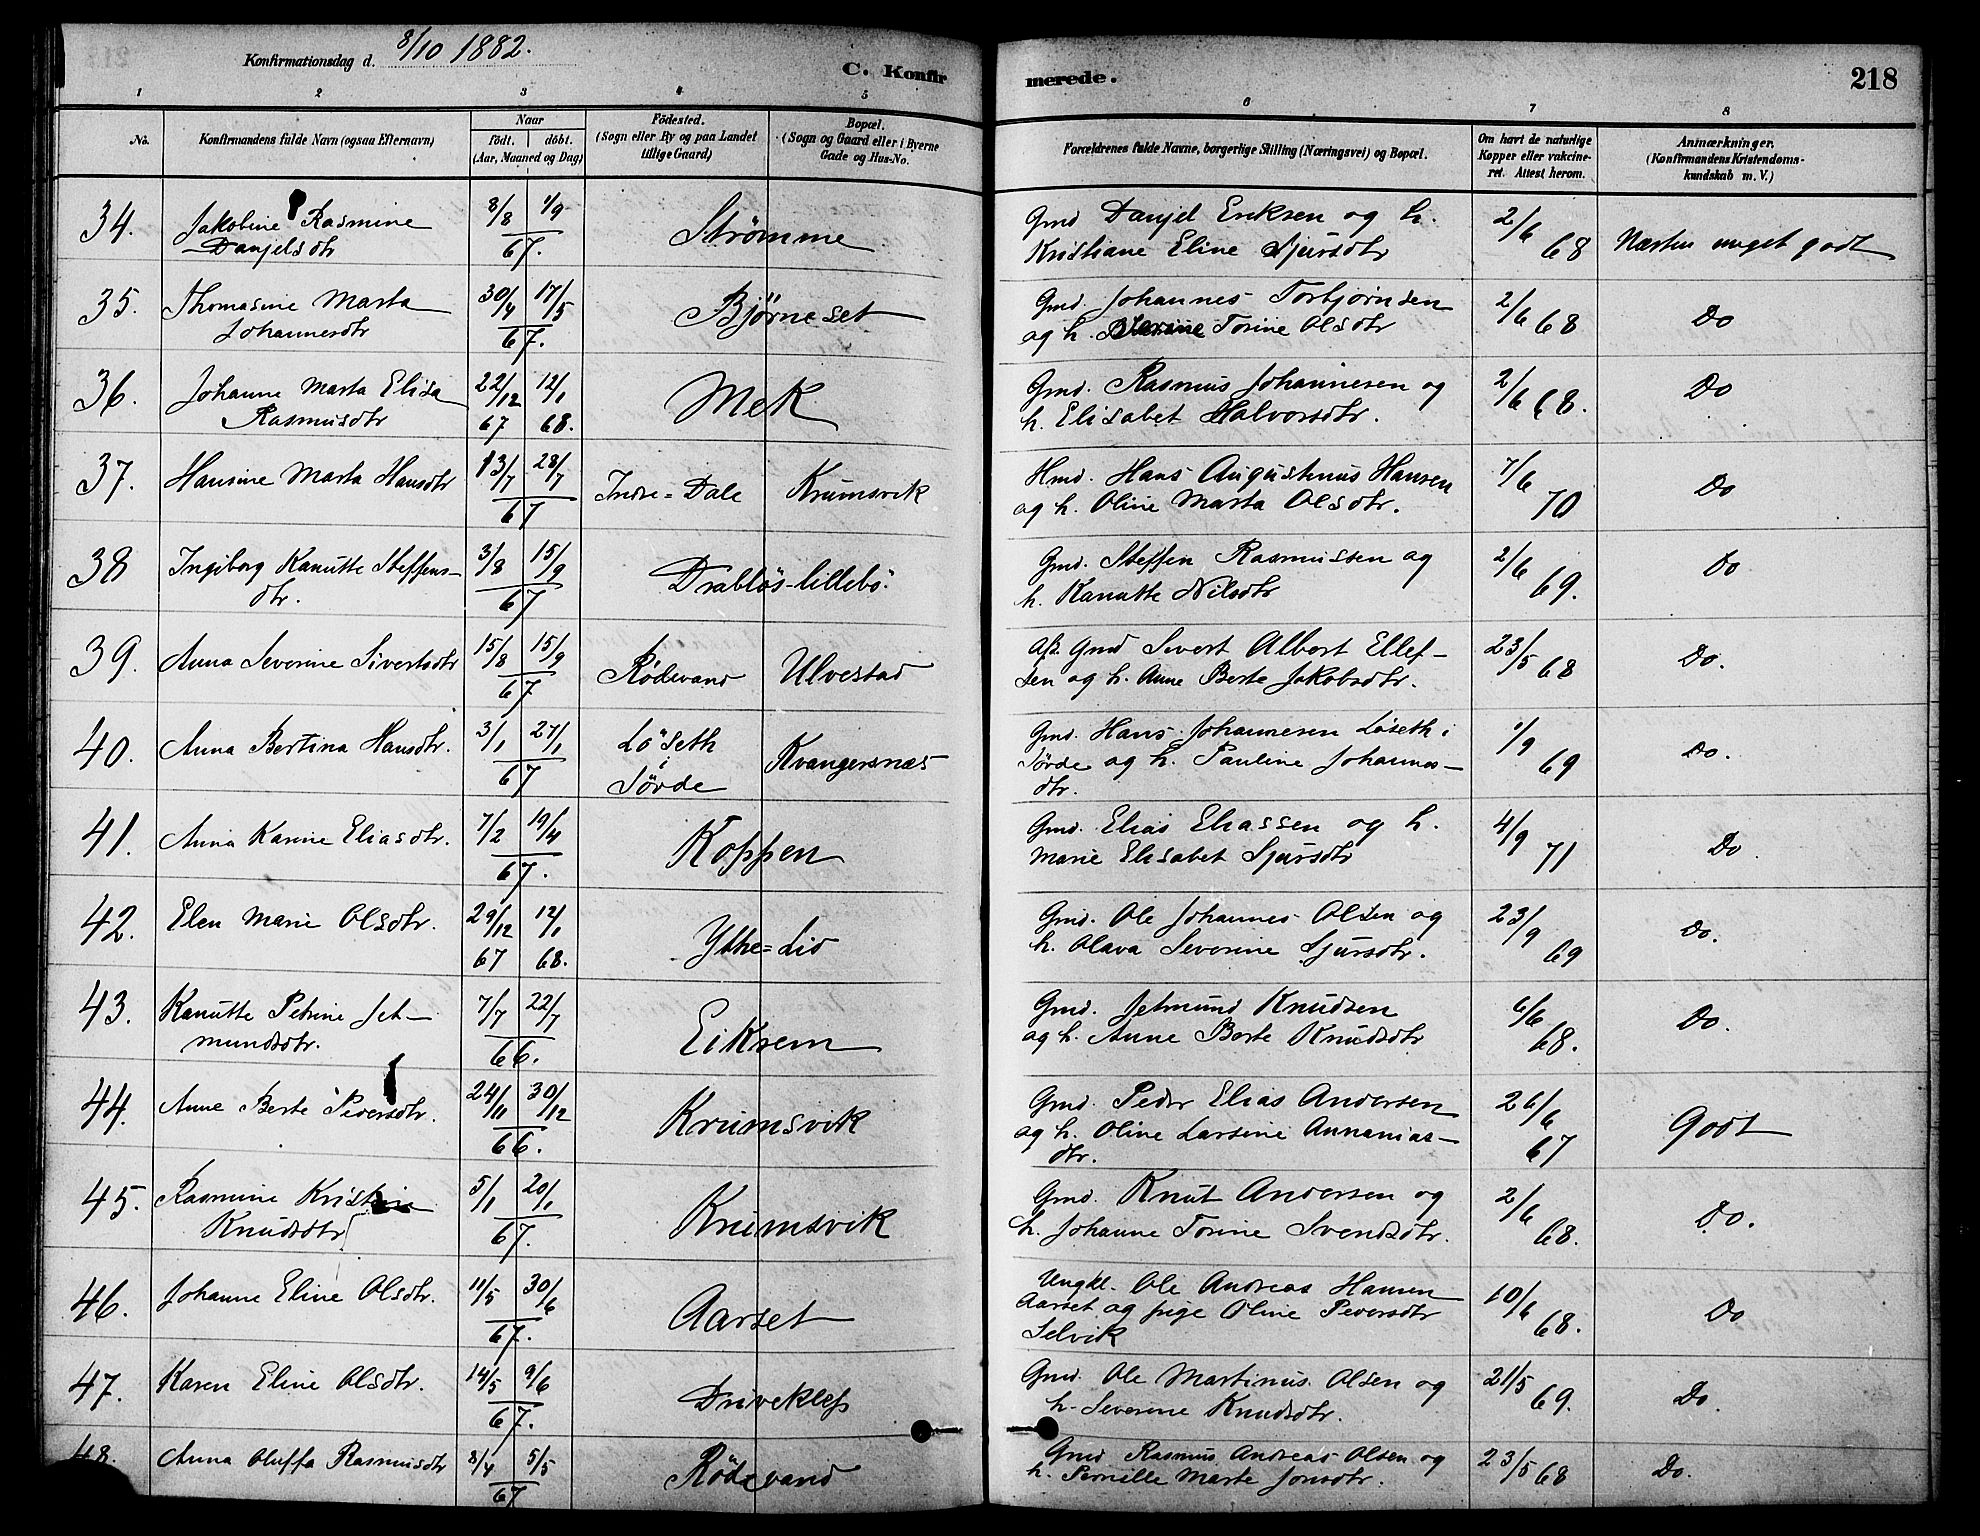 Konfirmationsdag d. 8/10 1882. C. Konfirmerede. 218
1 2 3 4 5 6 7 8
No. Konfirmandens fulde Navn (ogsaa Efternavn) Naar födt. döbt. (Aar, Maaned og Dag) Födested. (Sogn eller By og paa Landet tillige Gaard) Bopæl. (Sogn og Gaard eller i Byerne Gade og Hus-No. Forældrenes fulde Navne, borgerlige Stilling (Næringsvei) og Bopæl. Om havt de naturlige Kopper eller vakcineret. Attest herom. Anmærkninger. (Konfirmandens Kristendomskundskab m. V.)
34. Jakobine Rasmine 8/8 1/9 Strømme Gmd Danjel Eriksen og h. 2/6
Danjelsdtr 67. Kristiane Eline Sjursdtr 68 Næsten meget godt
35. Thomasine Marta 30/4 17/5 Bjørneset Gmd. Johannes Torbjørnsen 2/6 68 Do
Johannesdtr 67. og h. Torine Olsdtr
36. Johanne Marta Elisa 22/12 12/1 Mek Gmd. Rasmus Johannesen og 2/6 68. Do
Rasmusdtr 67 68. h. Elisabet Halvorsdtr.
37. Hansine Marta Hansdtr 13/7 28/7 Indre=Dale Krumsvik Hmd. Hans Augustinus Hansen 7/6 Do
67 og h. Oline Marta Olsdtr. 70
38 Ingiborg Kanutte Steffens- 3/8 15/9 Drabløs-lillebø. Gmd. Steffen Rasmussen og 2/6 Do
dtr. 67 h. Kanutte Nilsdtr 69.
39. Anna Severine Sivertsdtr 15/8 15/9 Rödevand Ulvestad Afsk. Gmd Sivert Albert Ellef- 23/5 68 Do.
67 sen og h. Anne Berte Jakobsdtr.
40. Anna Bertina Hansdtr. 3/1 27/1 Löseth i Kvangersnæs Gmd. Hans Johannesen Løseth i 1/9 Do.
67 Sörde Sørde og h. Pauline Johannes- 69
dtr.
41. Anna Karine Eliasdtr. 7/2 19/4 Koppen Gmd. Elias Eliassen og h. 4/9 Do
67. Marie Elisabet Sjursdtr 71
42. Elen Marie Olsdtr. 29/12 12/1 Ytre=Lid Gmd. Ole Johannes Olsen og 23/9 Do.
67 68. h. Olava Severine Sjursdtr. 69
43. Kanutte Petrine Jet- 7/7 22/7 Eikrem Gmd. Jetmund Knudsen 6/6 Do.
mundsdtr. 66. og h. Anne Berte Knudsdtr 68.
44. Anne Berte Pedersdtr. 24/11 30/12 Krumsvik Gmd. Peder Elias Andersen 26/6 Godt
66. og h. Oline Larsine Annanias- 67
dtr.
45. Rasmine Kristine 5/1 20/1 Krumsvik Gmd. Knut Andersen og 2/6 Do.
Knudsdtr 67. h. Johanne Torine Svendsdtr. 68.
46. Johanne Eline Olsdtr. 11/5 30/6 Aarset Ungkl. Ole Andreas Hansen 10/6 Do
67. Aarset og pige Oline Pedersdtr 68.
Selvik
47. Karen Eline Olsdtr. 14/5 9/6 Driveklep Gmd. Ole Martinus Olsen og 21/5 Do.
67. h. Severine Knudsdtr. 69.
48. Anna Oluffa Rasmusdtr 8/4 5/5 Rödevand Gmd Rasmus Andreas Olsen og 23/5 68 Do.
67 h. Pernille Marte Jonsdtr.